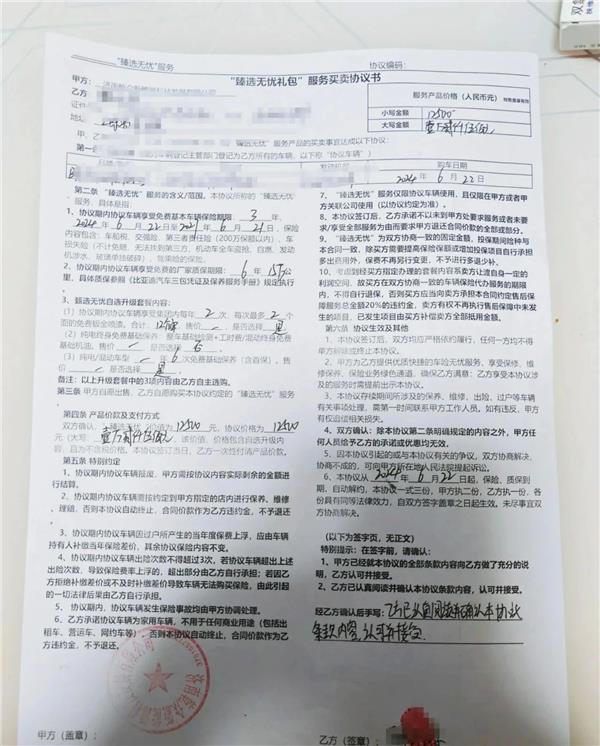 "臻选无忧"服务
协议编码：
"臻选无忧礼包"服务买卖协议书
服务产品价格（人民币元）
小写金额 12500
大写金额
甲方：
乙方
地址
购车日期
2024年 6月 22日
第二条 "臻选无忧"服务的含义/范围。本协议所称的"臻选无忧"
服务，具体是指：
1、协议期内协议车辆享受免费基本车辆保险期限： 3 年，
2024年 6月 22日至 2027年 6月 21日，保险
内容包含：车船税、交强险、第三者责任险（200万保额以内）、车
损失险（不计免赔、无法找到第三方、机动车全车盗抢、自燃、发动
机涉水、玻璃单独破碎）、驾乘险的保险。
2、协议期内协议车辆享受免费的厂家质保期限： 6 年 15万公
里，具体质保参照《比亚迪汽车三包凭证及保养服务手册》规定执行
3、甄选无忧自选升级套餐内容：
(1) 协议期内协议车辆享受集团内每年 2 次，每次最多 2 个
面的免费钣金喷漆。合计： 售价 是否选择 是
基础机油。售价 是否选择 否
(3) 纯电/混动车型 年 6 次免费基础保养（含首保）。售
价 是否选择 是
备注：以上升级套餐中的3项内容由乙方自主选购。
第三条 甲方自愿出售、乙方自愿购买本协议约定的"臻选无忧"服务
第四条 产品价款及支付方式
双方确认，"臻选无忧"价值为 12500 元，协议价格为 12500
且为不含税价格。本协议签订当日，乙方一次性付清产品价款。
第五条 特别约定
1、协议期内协议车辆报废，甲方需按协议内容实际剩余的金额进
行结算。
2、协议期内协议车辆需按约定到甲方指定的店内进行保养、维修
、理赔，否则本协议自动终止，合同价款作为乙方违约金，不予退还
3、协议期内协议车辆因过户所产生的当年度保费上浮，应由车辆
持有人补缴当年保险差价，其余协议保险内容不变。
4、协议期内协议车辆出险次数不得超过3次，若协议车辆超出上述
出险次数，导致保险费率上浮的，超出部分由乙方自行承担；若因乙
方拒绝补缴差价或不及时补缴差价导致车辆无法购买保险，由此引起
的一切法律后果由乙方自行承担。
5、协议期内，协议车辆发生保险事故均由甲方协调处理。
6、乙方承诺协议车辆为家用车辆，不用于任何商业用途（包括出
租车、营运车、网约车等），否则本协议自动终止，合同价款作为乙方
违约金，不予退还。
甲方（盖章）：
7、"臻选无忧"服务仅限协议车辆使用，且仅限在甲方或者甲
方关联公司使用（以协议约定为准）。
8、本协议签订后，乙方承诺不以未到甲方处要求服务或者未要
求/享受全部服务为由而要求甲方退还合同价款的全部或部分。
9、"臻选无忧"为双方协商一致的固定金额，投保期间险种与
本合同一致，除买方需要提高保险保额或增加投保项目自行承担
多出费用外，保费不再另行变更，不予进行多退少补。
10、考虑到经买方指定办理的套餐内容系卖方让渡自身一定的
利润空间，故买方在跟卖方协商一致的车辆保险代办服务的期限
内，不得自行退保，否则买方应当向卖方承担本合同约定售后保
障服务总金额20%的违约金，卖方有权不再执行售后保障中未发
生的项目，已发生项目由买方补偿卖方全部抵用金额。
第六条 协议生效及其他
1、本协议签订后，双方均应严格依约履行，任何一方均不得
单方解除或终止本协议。
2、甲方为了为乙方提供优质快捷的车险无忧服务，享受保修、维
修保养、保险业务绿色通道，确保乙方满意；乙方享受本协议涉
及的服务时需提前出示本协议。
3、协议存续期间所涉及的保养、维修、出险、过户等车辆
有关事项处理，需第一时间联系甲方工作人员。如有违反，甲方
有权追偿相关损失。
4、双方确认：除本协议第二条明确规定的内容之外，甲方任
何人员给予乙方的承诺或优惠均无效。
5、因本协议引起的或与本协议有关的争议，双方协商解决，
协商不成的，可向甲方所在地人民法院提起诉讼。
6、本协议从 2024年 6月 22日起，保险、质保到
期，自动解约，本协议一式三份，甲方执二份，乙方执一份，各
份具有同等法律效力，自双方签字盖章之日起生效。未尽事宜双
方协商解决。
（以下为签字页，无正文）
特别提示：在签字前，请确认：
1、甲方已经就本协议的全部条款内容向乙方做了充分的说
明，乙方认可并接受。
2、乙方已认真阅读并确认本协议条款内容，认可并接受。
经乙方确认后手写：乙方已认真阅读并确认本协议
条款内容，认可并接受
乙方（签章）：